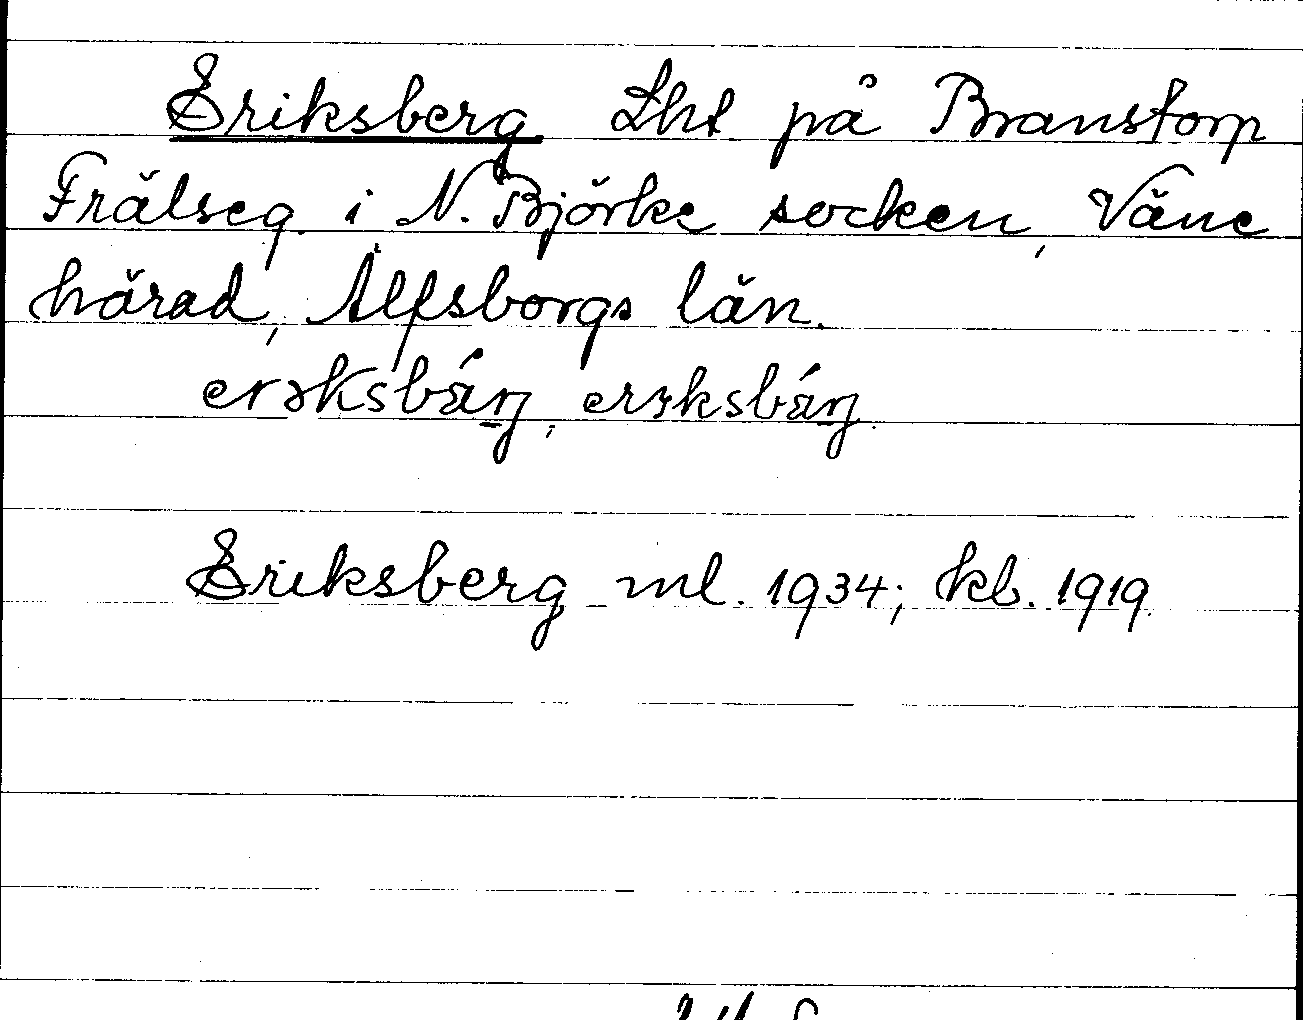 Eriksberg Lht på Branstorp
Frälseg. i N. Björke socken, Väne
härad, Älfsborgs län.
Eriksberg ml. 1934; kb. 1919.